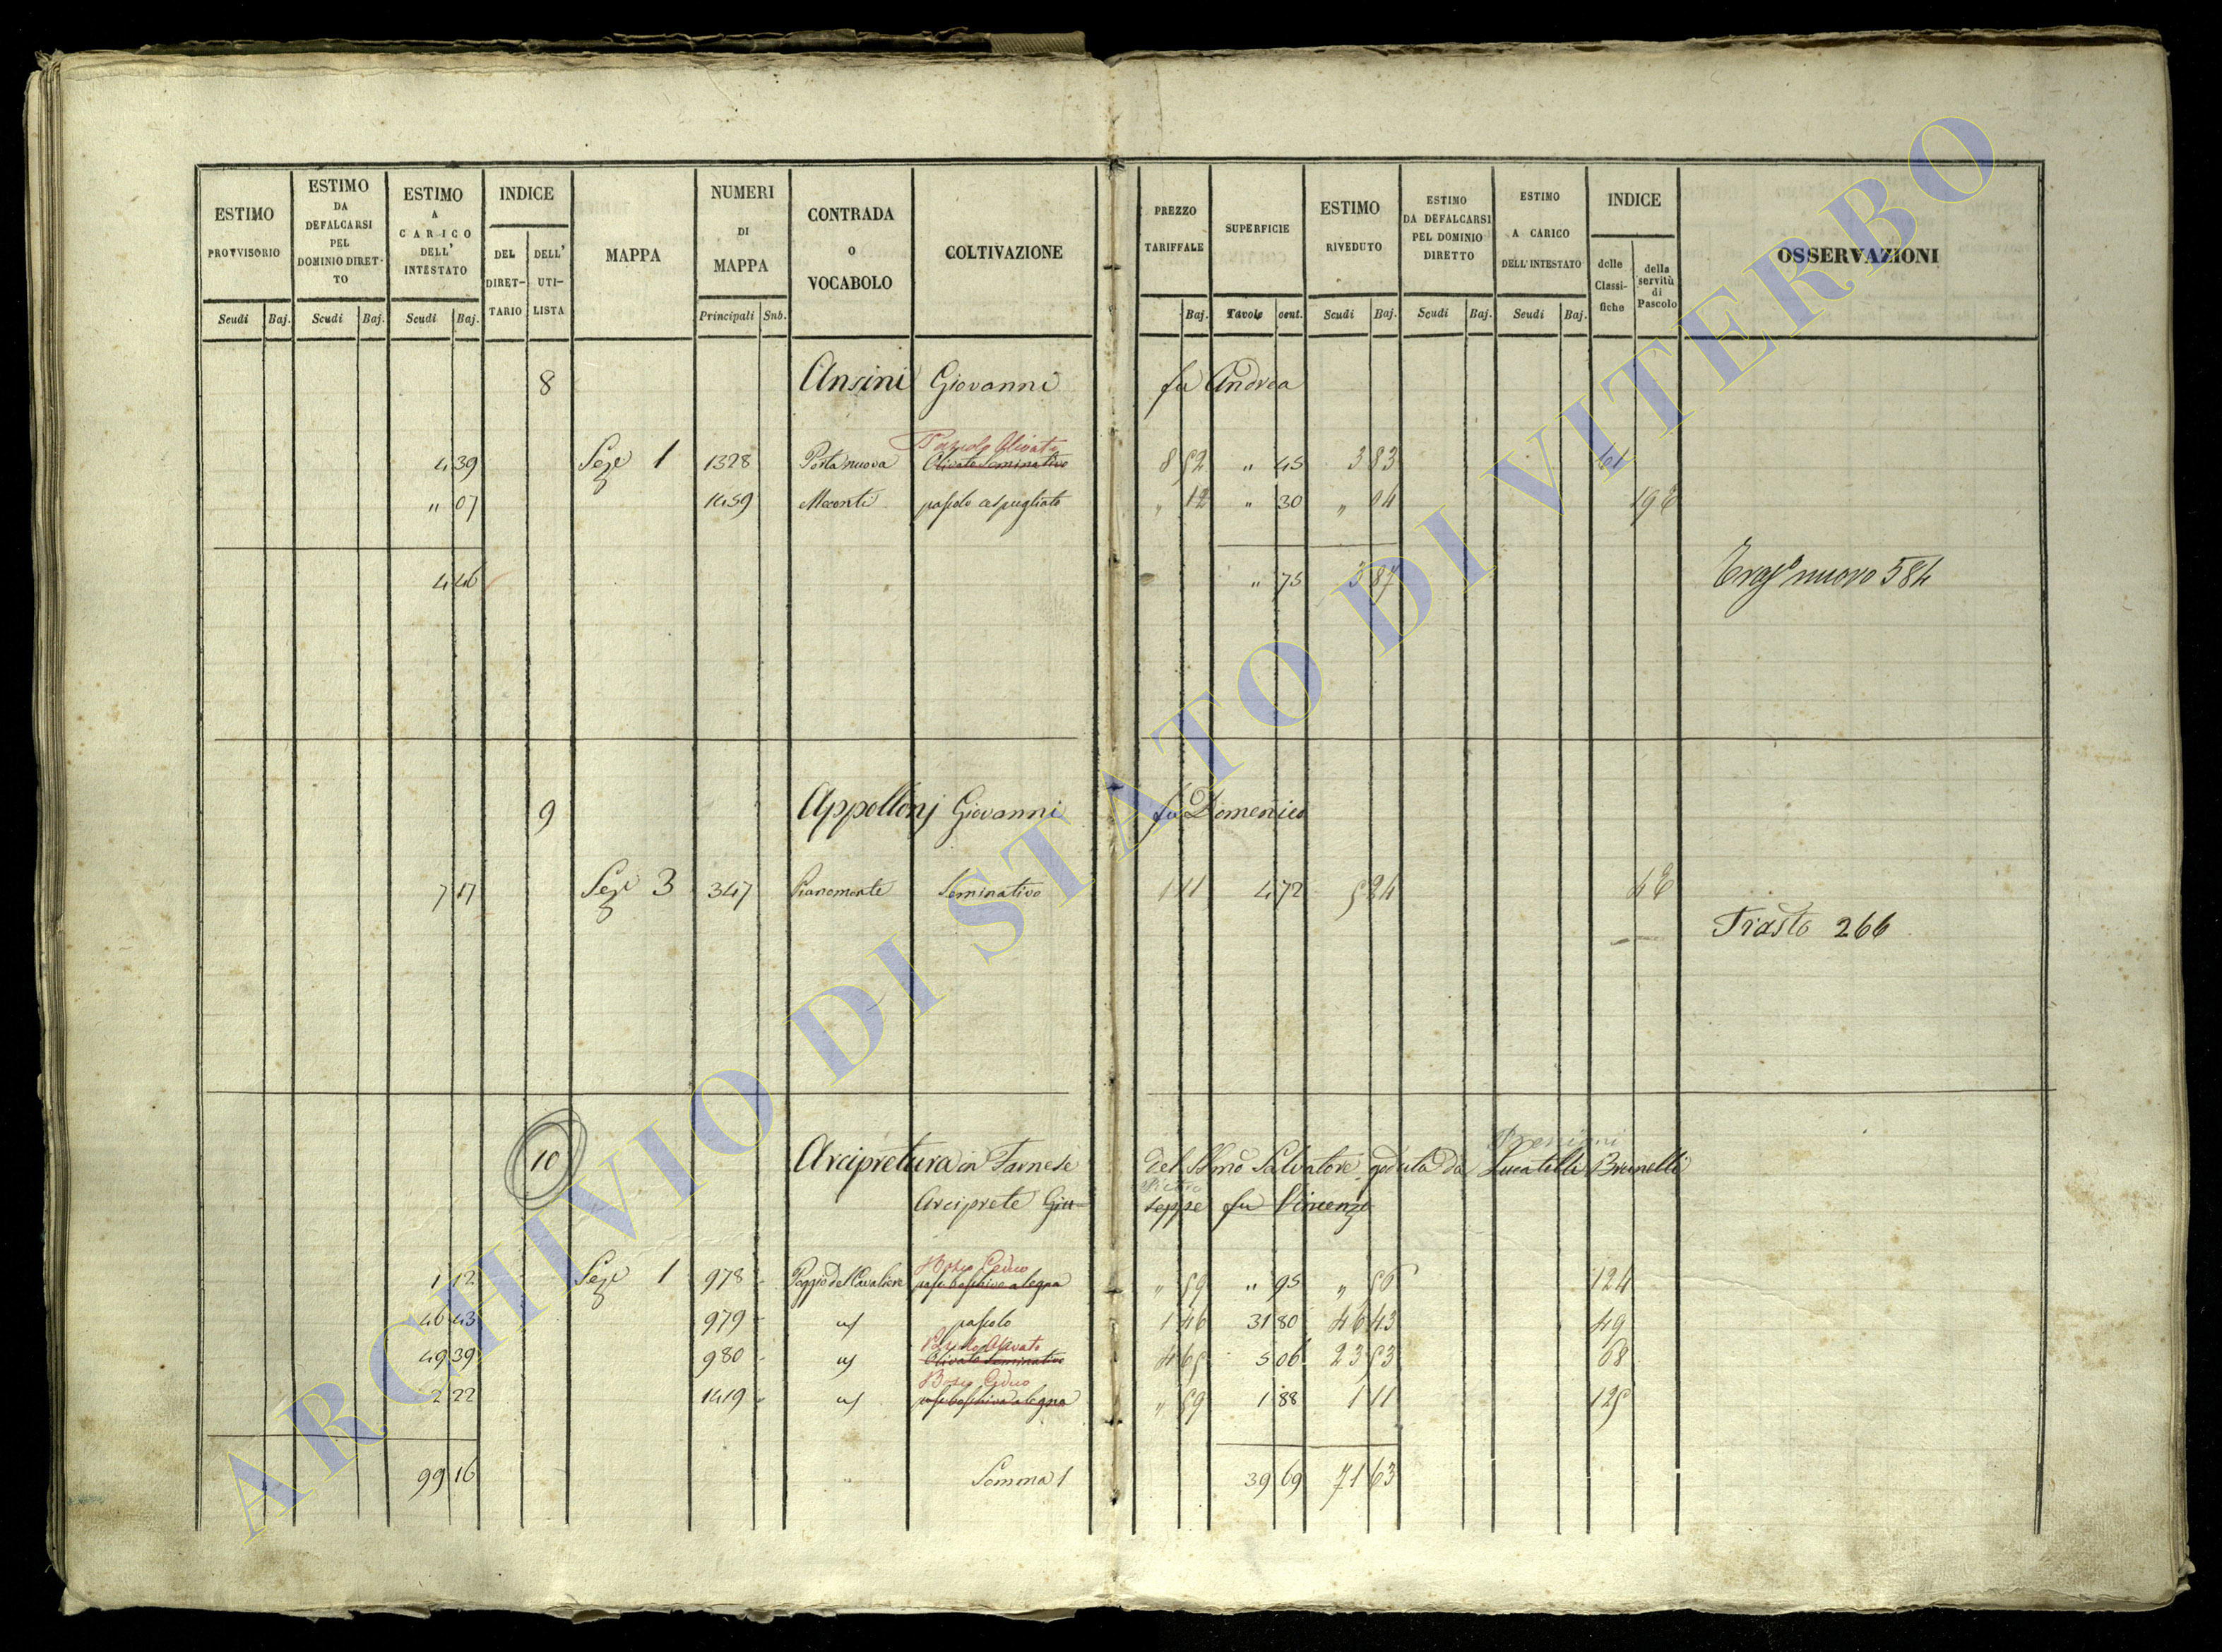 ESTIMO PROVVISORIO
ESTIMO DA DEFALCARSI PEL DOMINIO DIRET-TO
ESTIMO A CARICO DELL' INTESTATO
INDICE
DEL DIRET-TARIO
DELL' UTI-LISTA
MAPPA
NUMERI DI MAPPA
CONTRADA O VOCABOLO
COLTIVAZIONE
PREZZO TARIFFALE
SUPERFICIE
ESTIMO RIVEDUTO
ESTIMO DA DEFALCARSI PEL DOMINIO DIRETTO
ESTIMO A CARICO DELL' INTESTATO
INDICE
delle Classi-fiche
della servitù di Pascolo
OSSERVAZIONI
Scudi Baj. Scudi Baj. Scudi Baj. Principali Sub. Baj. Tavole cent. Scudi Baj. Scudi Baj. Scudi Baj.
8 Ansini Giovanni fu Andrea
Pascolo Olivato
4 39 Seze 1 1328 Porta nuova Olivato Seminativo 8 52 " 45 3 83 61
" 07 1459 Meconti pascolo cespugliato " 12 " 30 " 04 19 E
4 46 " 75 3 87 nuovo 584
9 Appollonj Giovanni fu Domenico
7 17 Seze 3 347 Pianomonte Seminativo 1 11 4 72 5 24 4 E
Trasto 266
10 Arcipretura in Farnese del SSmo Salvatore goduta da Lucatelli Brunelli
Pietro
Arciprete Giu-seppe fu Vincenzo
Bosco Ceduo
1 12 Seze 1 978 Poggio del Cavaliere pasc boschivo a legna " 59 " 95 " 56 124
46 43 979 " pascolo 1 46 31 80 46 43 49
Pascolo Olivato
49 39 980 " Olivato Seminativo 4 65 5 06 23 53 68
Bosco Ceduo
2 22 1419 " pasc boschivo a legna " 59 1 88 1 11 125
99 16 Somma 1 39 69 71 63
ARCHIVIO DI STATO DI VITERBO